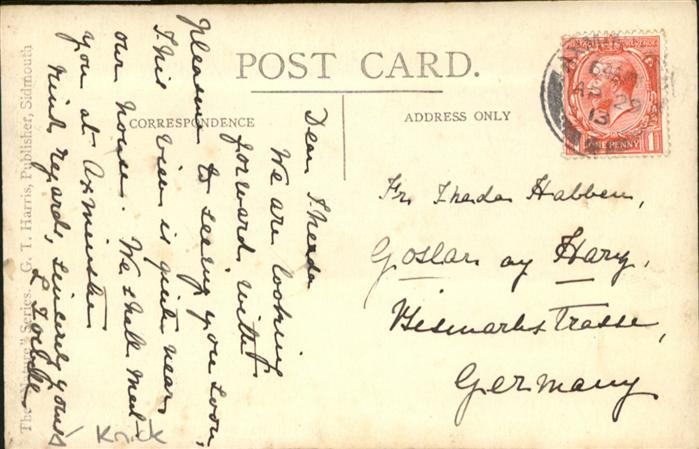 POST CARD.
CORRESPONDENCE
ADDRESS ONLY
Dear Theda
We are looking
forward with
pleasure to seeing you soon,
This view is quite near
our house. We shall meet
you at Axminster
Kind regards, sincerely yours
Fr. Theda Habben,
Goslar ay Harz,
Bismarkstrasse,
Germany
The "Nature" Series. G. T. Harris, Publisher, Sidmouth
AP 29
13
ONE PENNY
Krick